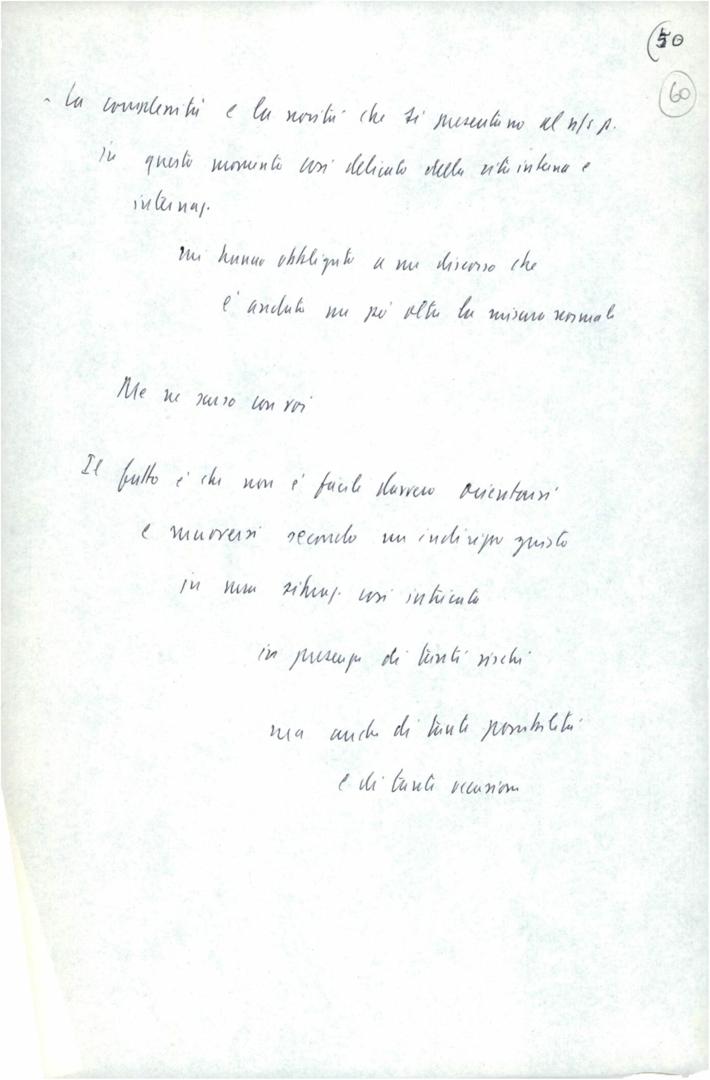 50
60
- La complessità e la novità che si presentano al n/s p.
in questo momento così delicato della vita interna e
internaz.
mi hanno obbligato a un discorso che
è andato un pò oltre la misura normale
Me ne scuso con voi
Il fatto è che non è facile davvero orientarsi
e muoversi secondo un indirizzo giusto
in una situaz. così intricata
in presenza di tanti rischi
ma anche di tante possibilità
e di tante occasioni